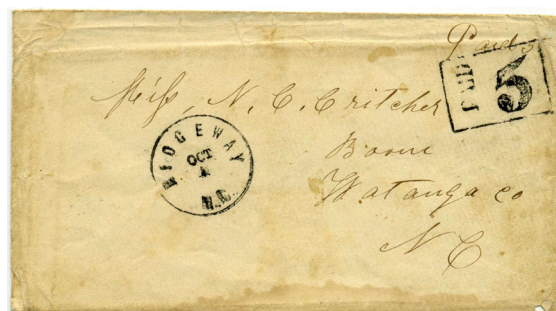 Paid 5
PAID
5
Miss, N. C. Critcher
Boone
Watauga co
N C
RIDGEWAY
OCT
4
N.C.